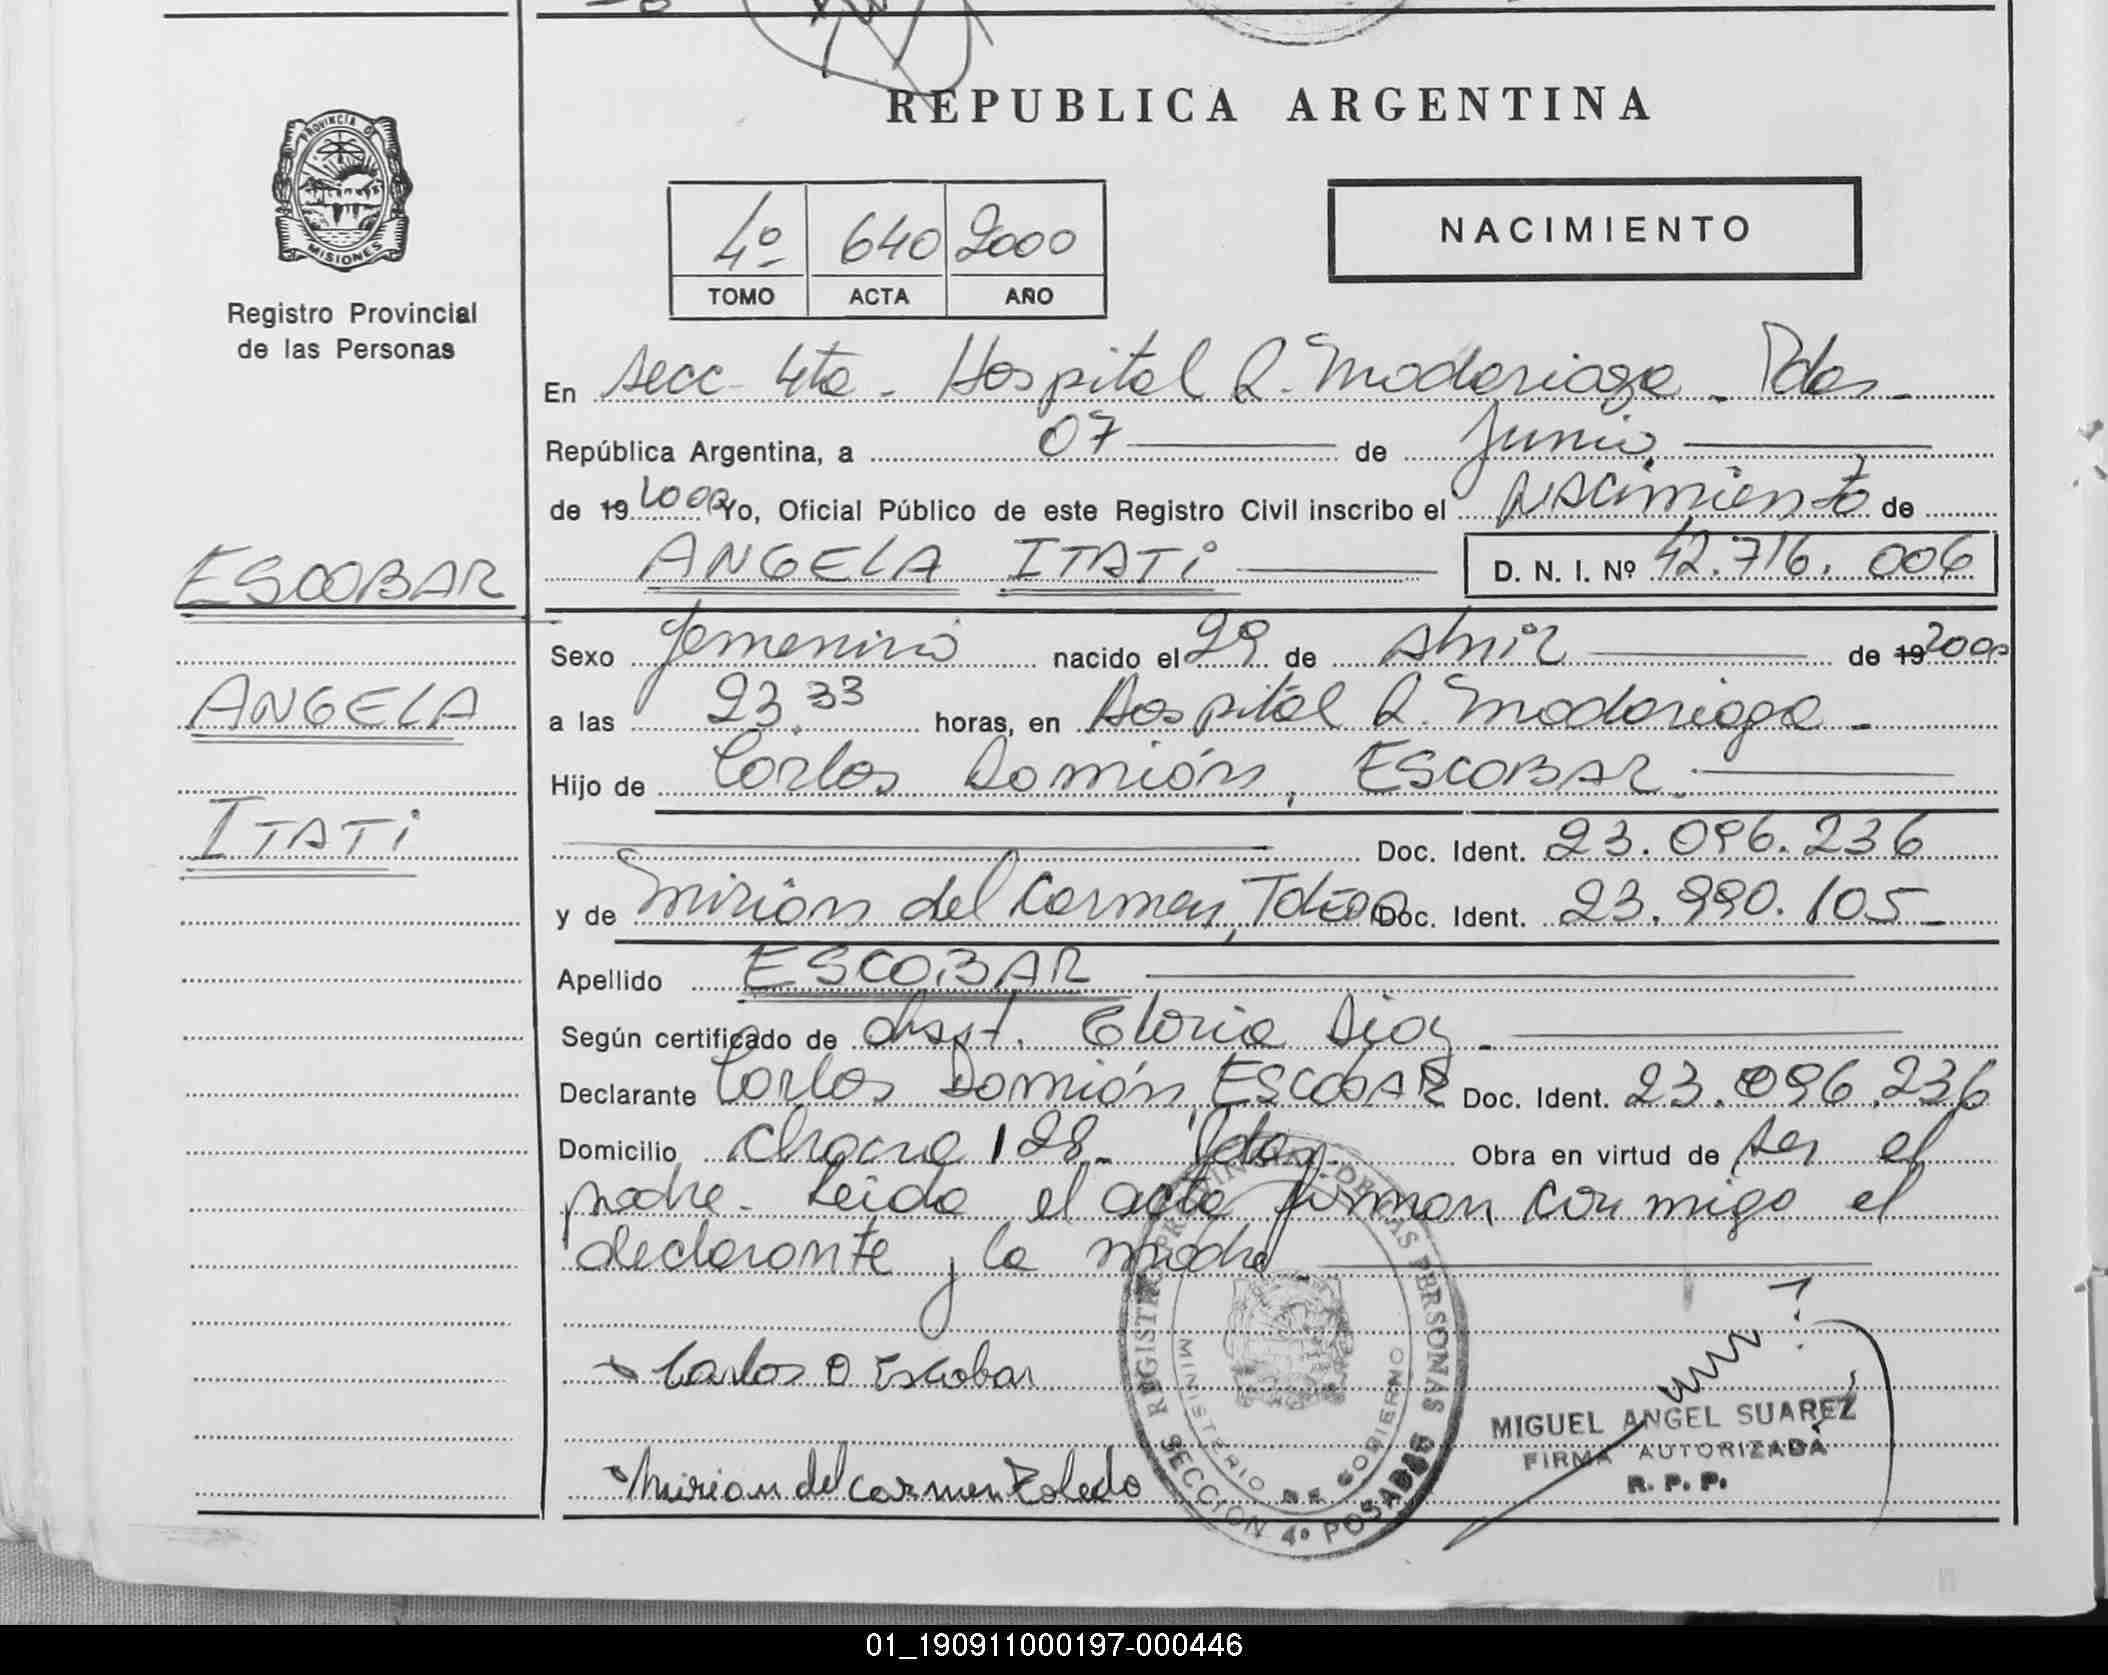 REPUBLICA ARGENTINA
PROVINCIA DE
MISIONES
Registro Provincial
de las Personas
4º 640 2000
TOMO ACTA AÑO
NACIMIENTO
En Secc. 4ta. Hospital R. Madariaga. Pdas.
República Argentina, a 07 de Junio
de 19 2000 Yo, Oficial Público de este Registro Civil inscribo el nacimiento de
ANGELA ITATi D. N. I. Nº 42.716.006
ESCOBAR
ANGELA
ITATi
Sexo femenino nacido el 29 de Abril de 19 2000
a las 23.33 horas, en Hospital R. Madariaga
Hijo de Carlos Damián, ESCOBAR.
Doc. Ident. 23.096.236
y de Mirian del Carmen, Toledo Doc. Ident. 23.990.105
Apellido ESCOBAR
Según certificado de Obst. Gloria Diaz
Declarante Carlos Damián, ESCOBAR Doc. Ident. 23.096.236
Domicilio Chacra 128. Pdas. Obra en virtud de ser el
padre. Leida el acta firman conmigo el
declarante y la madre
Carlos D Escobar
Mirian del carmen Toledo
REGISTRO PROVINCIAL DE LAS PERSONAS
MINISTERIO DE GOBIERNO
SECCION 4º POSADAS
MIGUEL ANGEL SUAREZ
FIRMA AUTORIZADA
R. P. P.
01_190911000197-000446